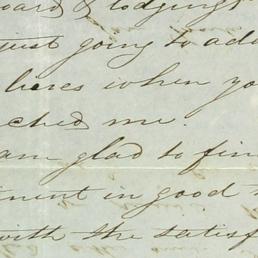 oard & lodgings
just going to add
lines when yo
ched me.
am glad to fin
ment in good
with the satisf